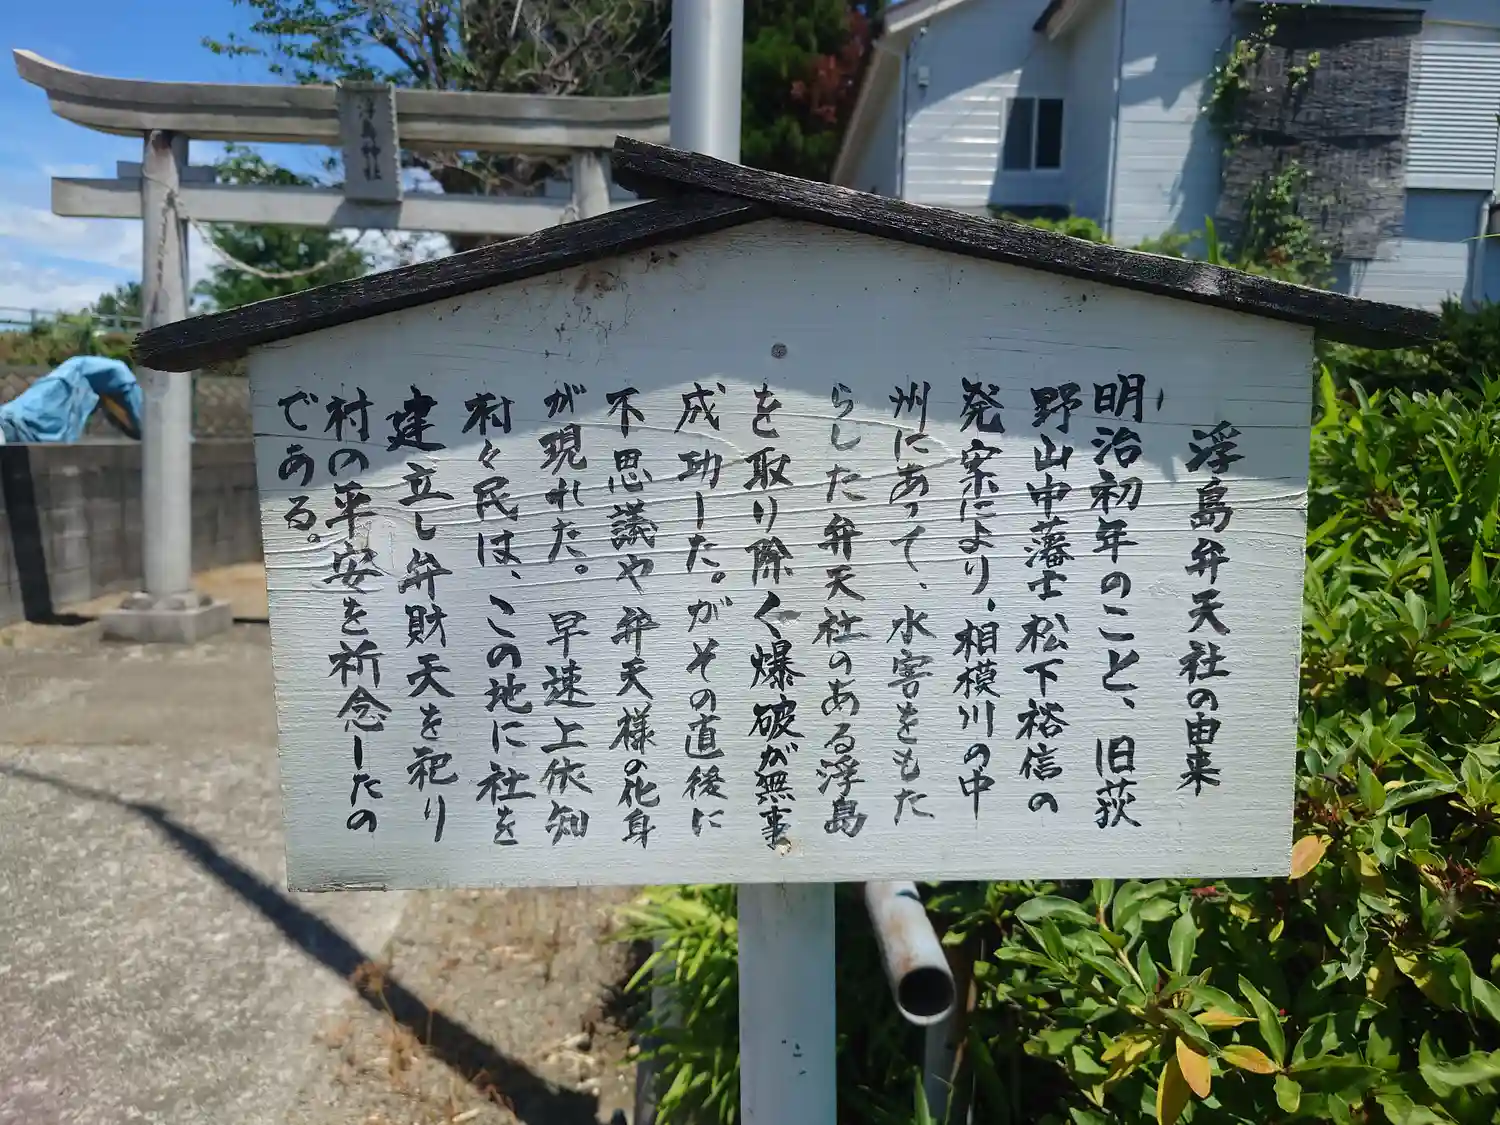 浮島神社
浮島弁天社の由来
明治初年のこと、旧荻
野山中藩士松下裕信の
発案により、相模川の中
州にあって、水害をもた
らした弁天社のある浮島
を取り除く爆破が無事
成功した。がその直後に
不思議や弁天様の化身
が現れた。早速上依知
村々民は、この地に社を
建立し弁財天を祀り
村の平安を祈念したの
である。